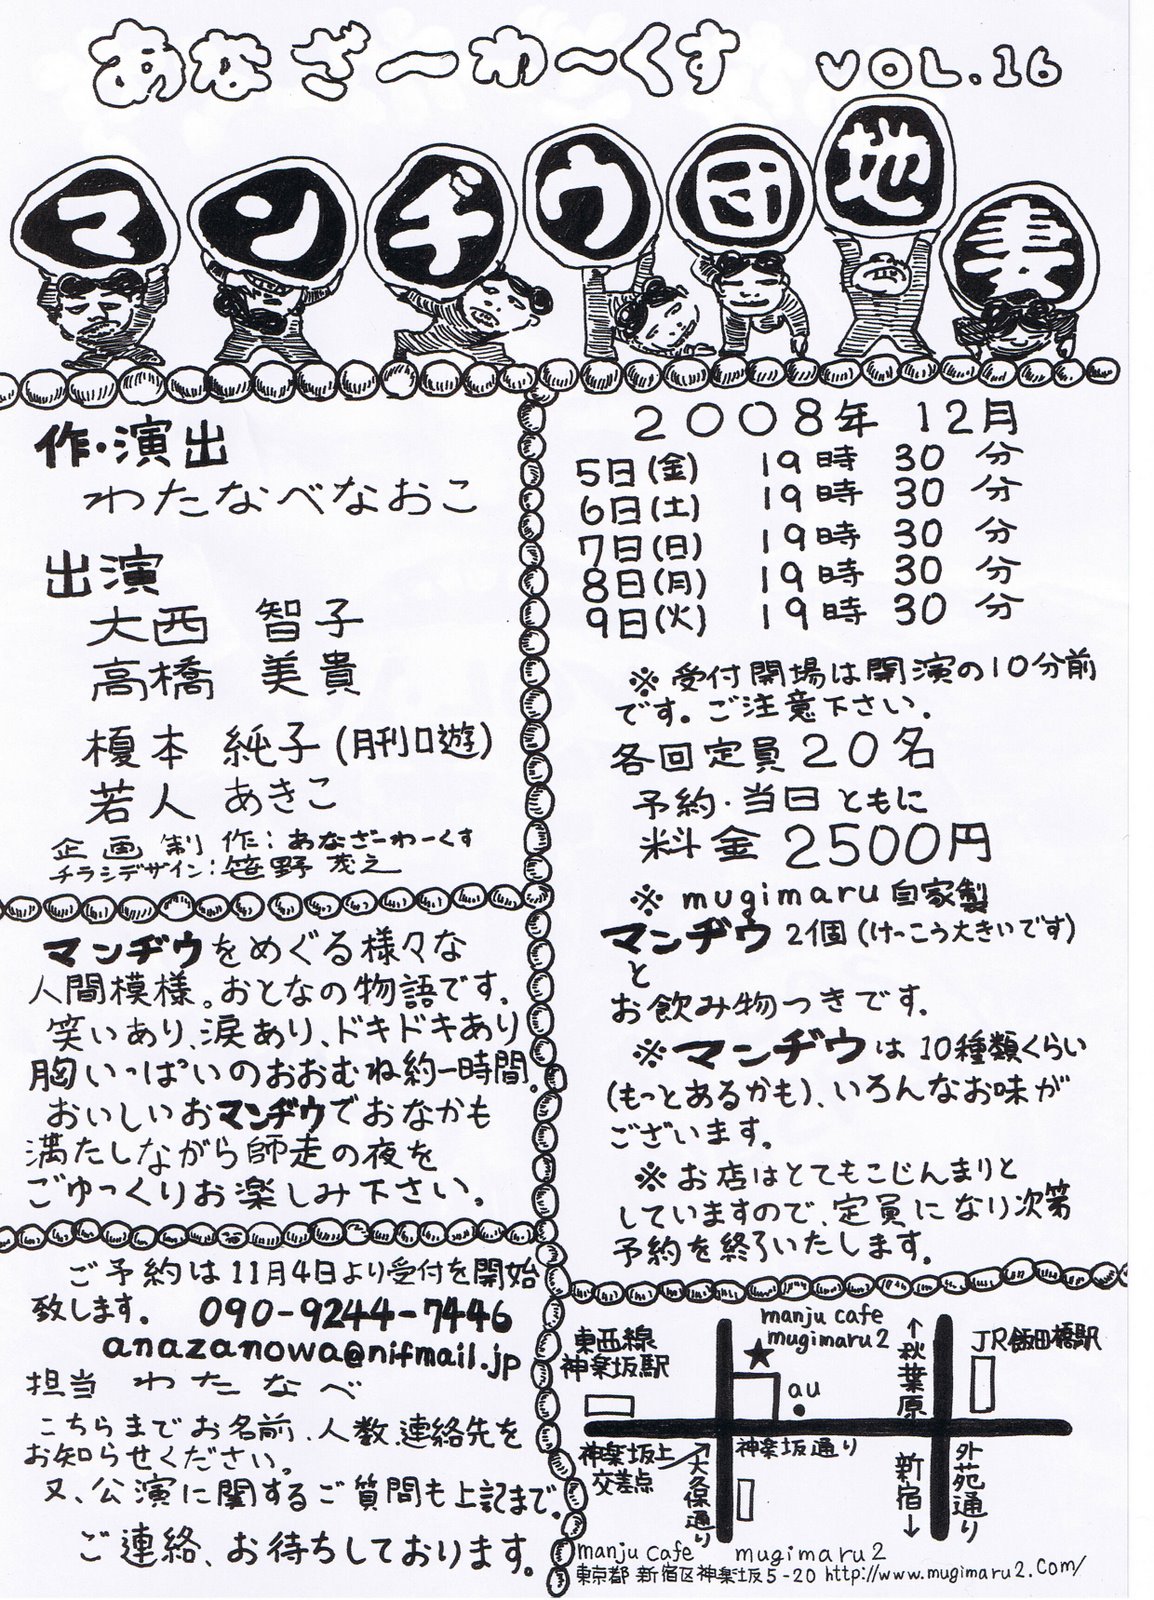 あなざーわ～くす VOL.16
マンヂウ団地妻
作・演出
わたなべなおこ
出演
大西 智子
高橋 美貴
榎本 純子(月刊口遊)
若人 あきこ
企画制作:あなざーわーくす
チラシデザイン:笹野茂之
マンヂウをめぐる様々な
人間模様。おとなの物語です。
笑いあり、涙あり、ドキドキあり
胸いっぱいのおおむね約一時間。
おいしいおマンヂウでおなかも
満たしながら師走の夜を
ごゆっくりお楽しみ下さい。
ご予約は11月4日より受付を開始
致します。 090-9244-7446
anazanowa@nifmail.jp
担当 わたなべ
こちらまでお名前、人数、連絡先を
お知らせください。
又、公演に関するご質問も上記まで。
ご連絡、お待ちしております。
2008年 12月
5日(金) 19時 30分
6日(土) 19時 30分
7日(日) 19時 30分
8日(月) 19時 30分
9日(火) 19時 30分
※受付開場は開演の10分前
です。ご注意下さい。
各回定員20名
予約・当日ともに
料金2500円
※mugimaru自家製
マンヂウ2個(けっこう大きいです)
と
お飲み物つきです。
※マンヂウは10種類くらい
(もっとあるかも)、いろんなお味が
ございます。
※お店はとてもこじんまりと
していますので、定員になり次第
予約を終了いたします。
manju cafe
mugimaru2
東西線
神楽坂駅
★
au
↑秋葉原
JR飯田橋駅
神楽坂上
交差点
神楽坂通り
大久保通り
新宿↓
外苑通り
manju cafe mugimaru2
東京都新宿区神楽坂5-20 http://www.mugimaru2.com/